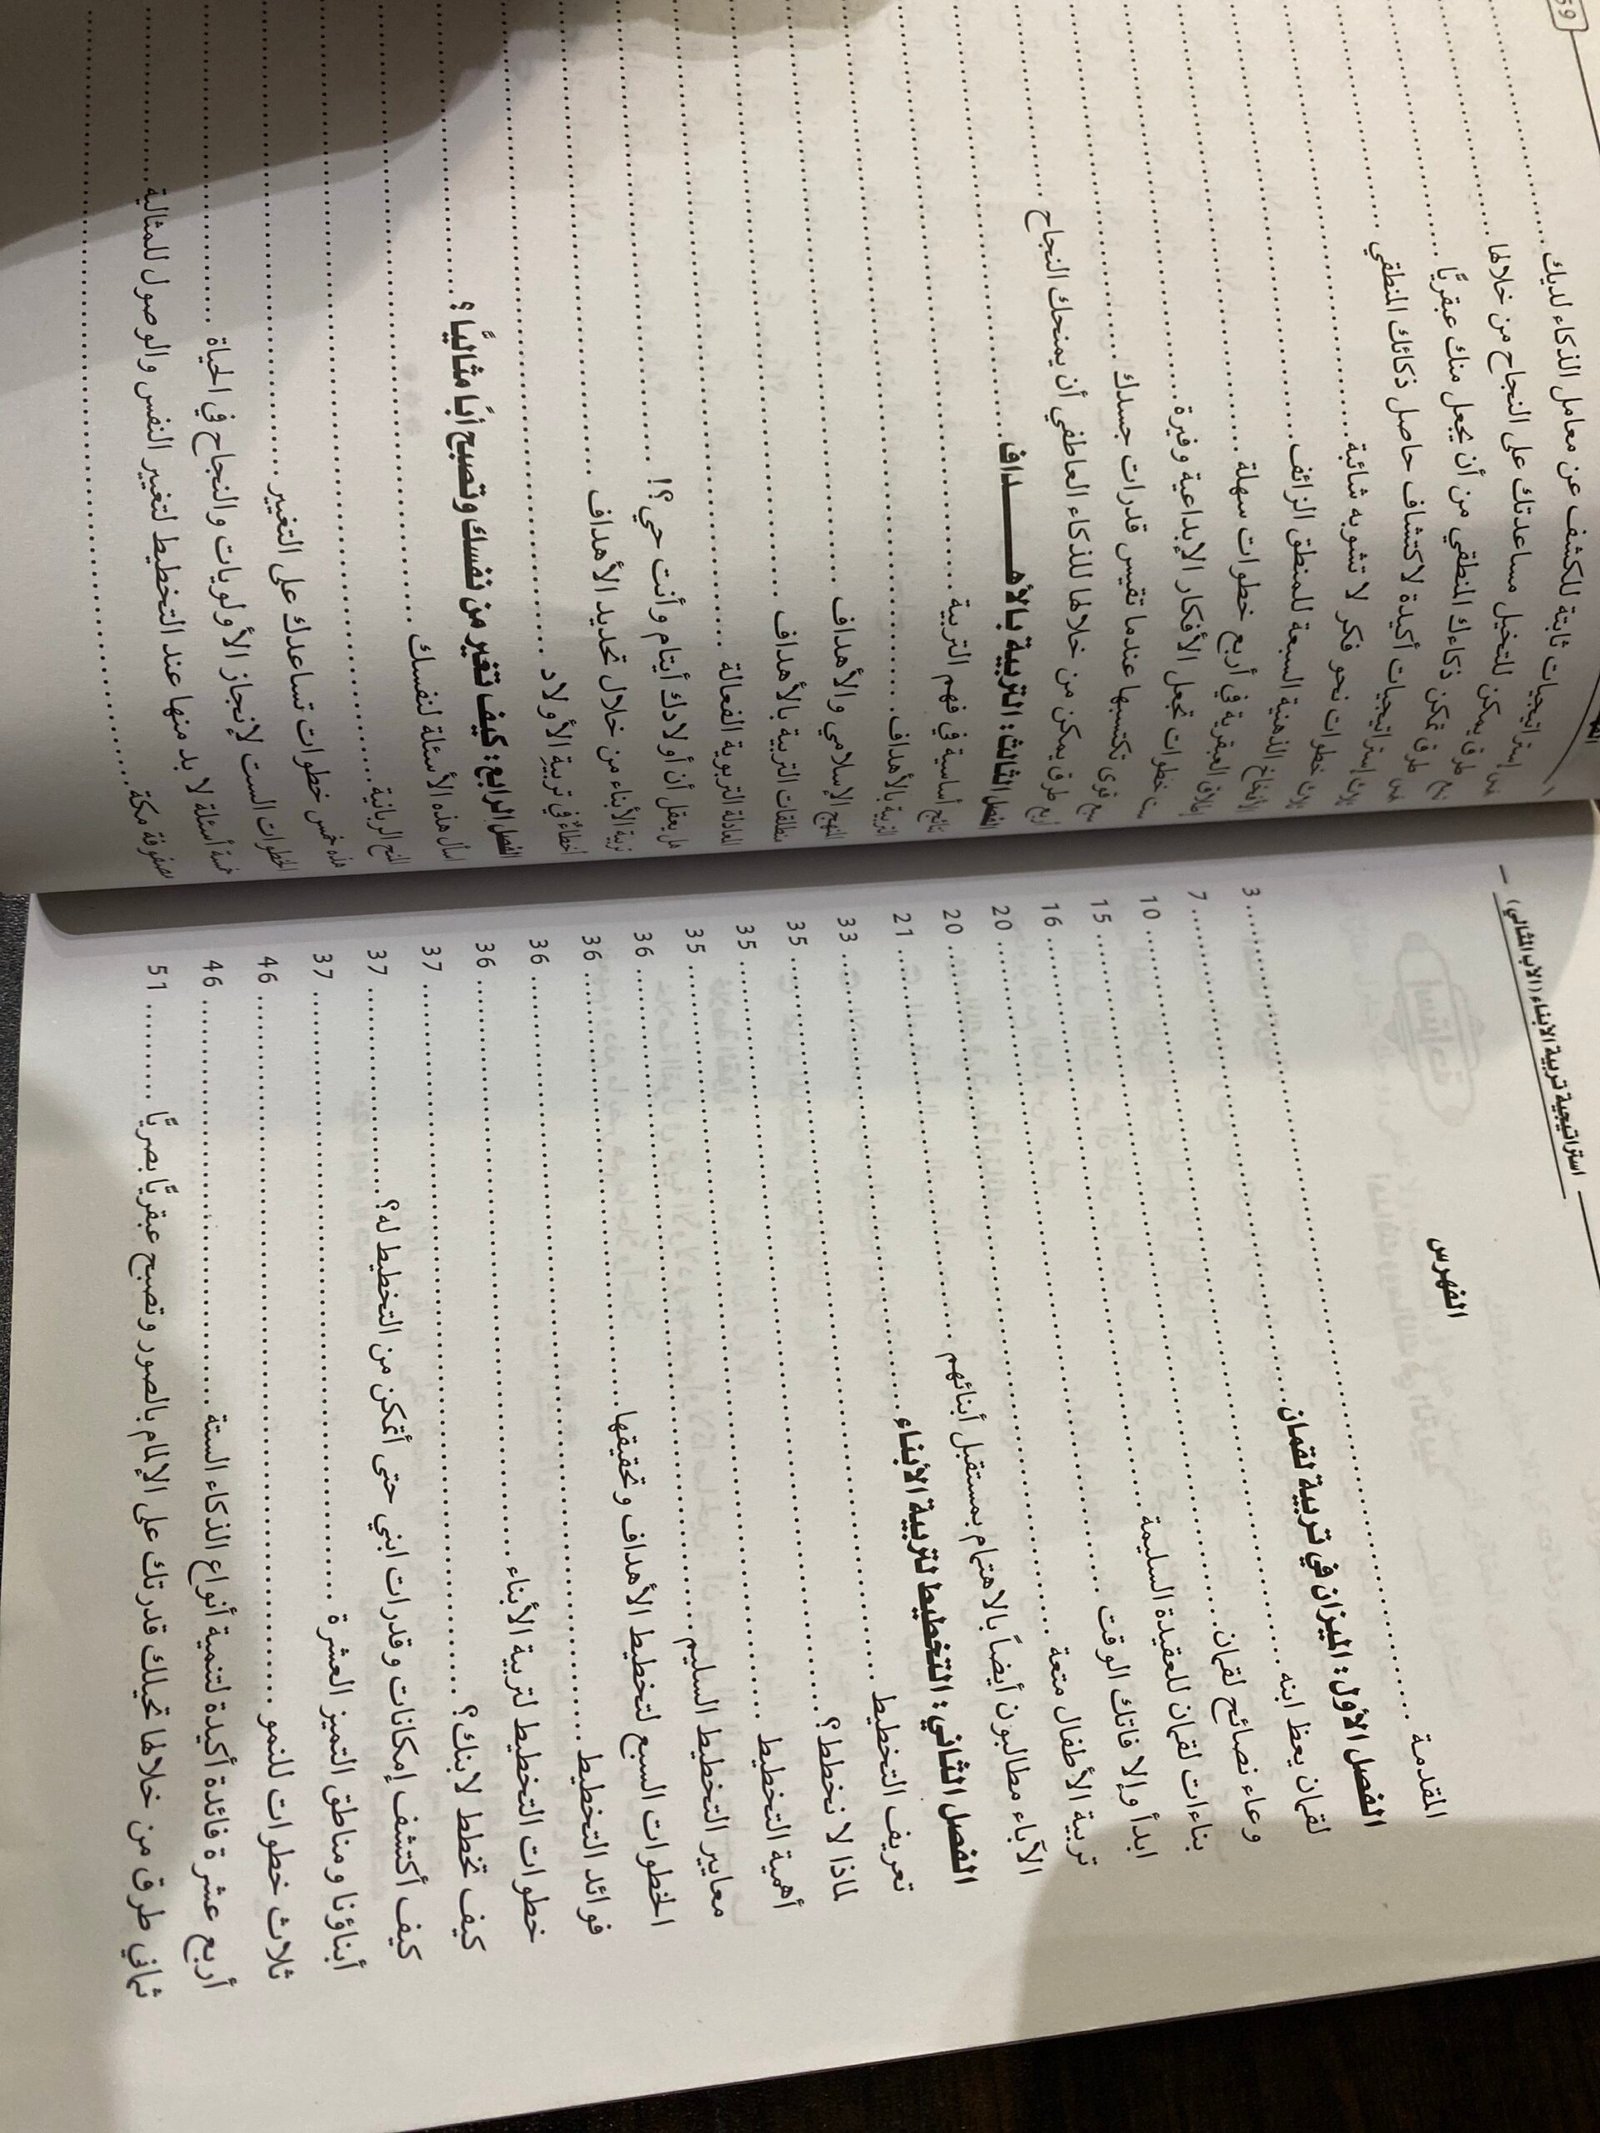 استراتيجية تربية الأبناء (الأب المثالي)
الفهرس
المقدمة ........ 3
الفصل الأول: الميزان في تربية لقمان ........ 7
لقمان يعظ ابنه ........ 10
وعاء نصائح لقمان ........ 15
بناءات لقمان للعقيدة السليمة ........ 16
ابدأ وإلا فاتك الوقت ........ 20
تربية الأطفال متعة ........ 20
الآباء مطالبون أيضاً بالاهتمام بمستقبل أبنائهم ........ 21
الفصل الثاني: التخطيط لتربية الأبناء ........ 33
تعريف التخطيط ........ 35
لماذا لا نخطط؟ ........ 35
أهمية التخطيط ........ 35
معايير التخطيط السليم ........ 36
الخطوات السبع لتخطيط الأهداف وتحقيقها ........ 36
فوائد التخطيط ........ 36
خطوات التخطيط لتربية الأبناء ........ 36
كيف تخطط لابنك؟ ........ 37
كيف أكتشف إمكانات وقدرات ابني حتى أتمكن من التخطيط له؟ ........ 37
أبناؤنا ومناطق التميز العشرة ........ 37
ثلاث خطوات للنمو ........ 46
أربع عشرة فائدة أكيدة لتنمية أنواع الذكاء الستة ........ 46
ثماني طرق من خلالها تحيلك قدرتك على الإلمام بالصور وتصبح عبقريًّا بصريًّا ........ 51
59
إستراتيجيات ثابتة للكشف عن معامل الذكاء لديك ........
طرق يمكن للتخيل مساعدتك على النجاح من خلالها ........
طرق تمكن ذكاءك المنطقي من أن يجعل منك عبقريًّا ........
إستراتيجيات أكيدة لاكتشاف حاصل ذكائك المنطقي ........
ثلاث خطوات نحو فكر لا تشوبه شائبة ........
الأفخاخ الذهنية السبعة للمنطق الزائف ........
إطلاق العبقرية في أربع خطوات سهلة ........
ست خطوات تجعل الأفكار الإبداعية وفيرة ........
سبع قوى تكتسبها عندما تقيس قدرات جسدك ........
أربع طرق يمكن من خلالها للذكاء العاطفي أن يمنحك النجاح ........
الفصل الثالث: التربية بالأهــــداف ........
نتائج أساسية في فهم التربية ........
التربية بالأهداف ........
النهج الإسلامي والأهداف ........
منطلقات التربية بالأهداف ........
المعادلة التربوية الفعالة ........
هل يعقل أن أولادك أيتام وأنت حي؟! ........
تربية الأبناء من خلال تحديد الأهداف ........
أخطاءٌ في تربية الأولاد ........
الفصل الرابع: كيف تغير من نفسك وتصبح أبًا مثاليًّا؟ ........
اسأل هذه الأسئلة لنفسك ........
المنح الربانية ........
هذه خمس خطوات تساعدك على التغيير ........
الخطوات الست لإنجاز الأولويات والنجاح في الحياة ........
خمسة أسئلة لا بد منها عند التخطيط لتغيير النفس والوصول للمثالية ........
مصفوفة مكة ........